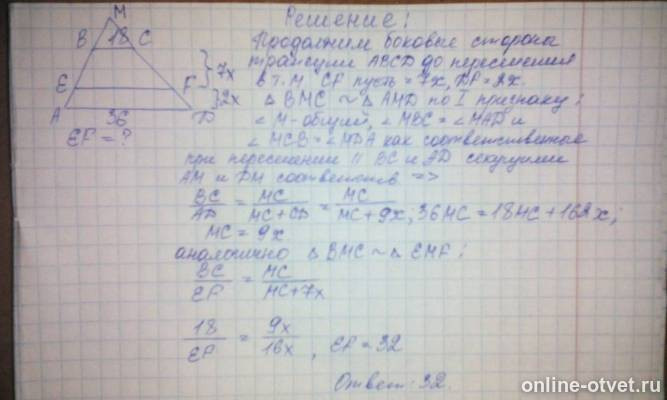 Решение:
M
B 18 C
E F
A D
36
7x
2x
EF = ?
Продолжим боковые стороны
трапеции ABCD до пересечения
в т. M CF пусть = 7x, DF = 2x.
△ BMC ~ △ AMD по I признаку:
∠ M - общий, ∠ MBC = ∠ MAD и
∠ MCB = ∠ MDA как соответственное
при пересечении || BC и AD секущими
AM и DM соответств. =>
BC/AD = MC/MC+CD = MC/MC+9x; 36MC = 18MC + 162x;
MC = 9x
аналогично △ BMC ~ △ EMF:
BC/EF = MC/MC+7x
18/EF = 9x/16x, EF = 32
Ответ: 32.
online-otvet.ru